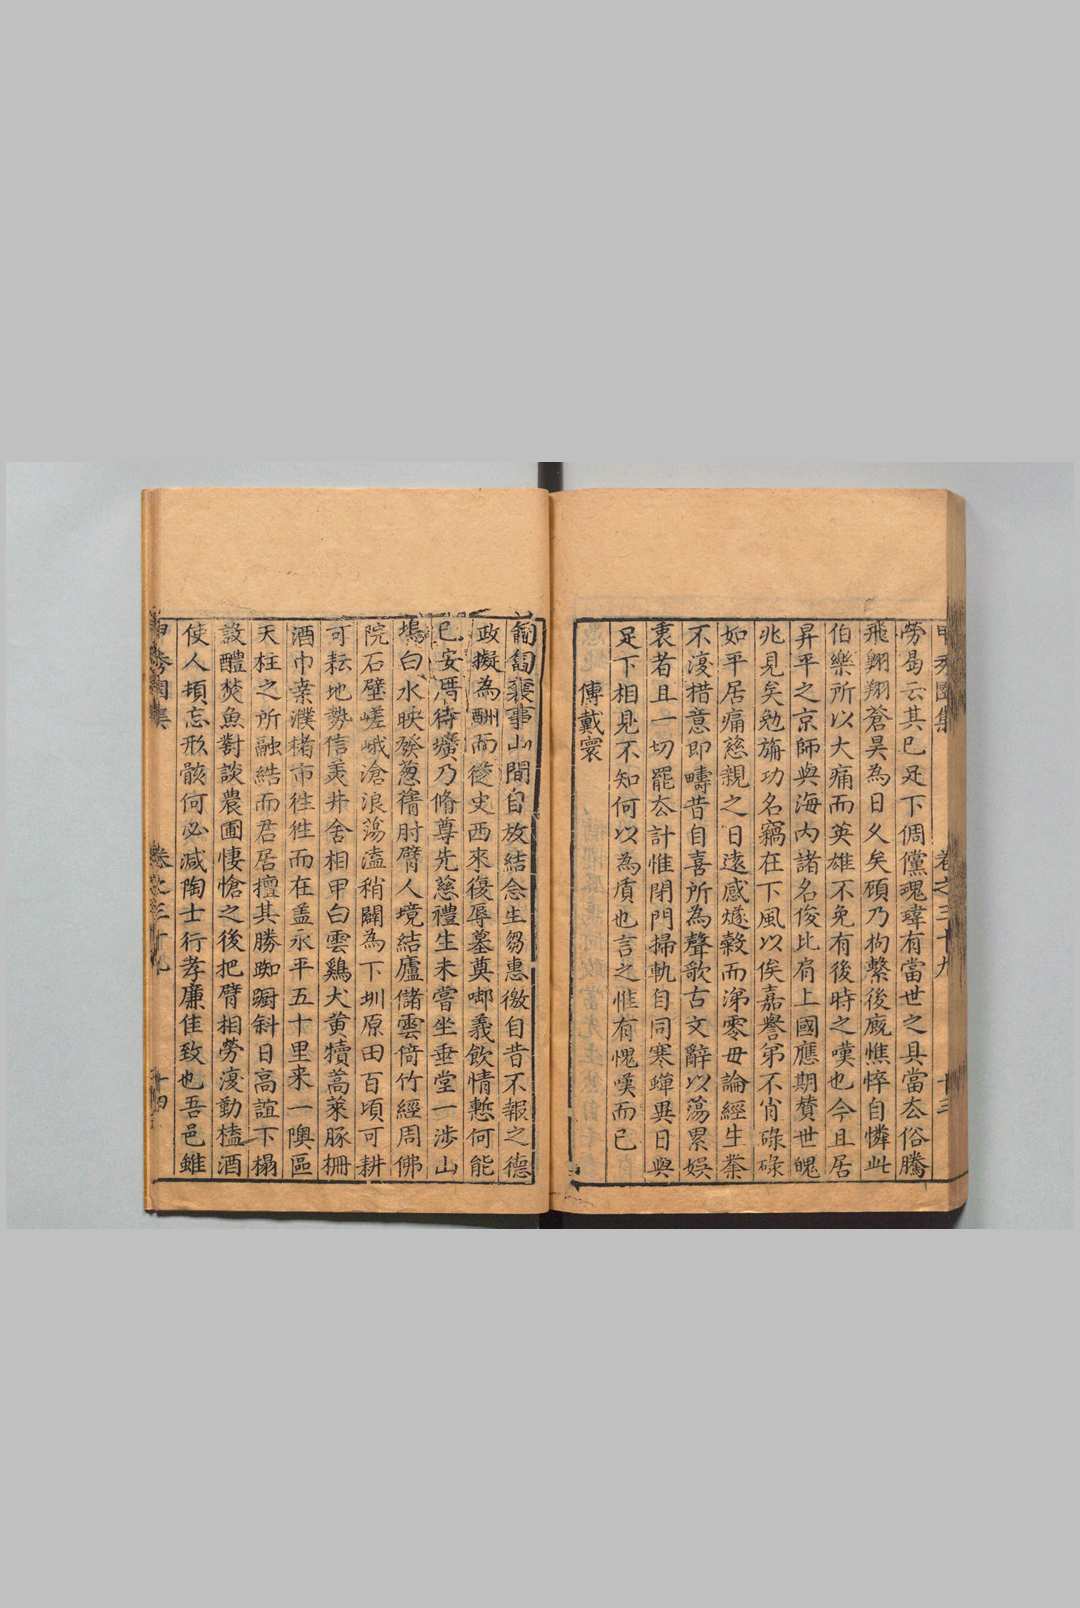 勞曷云其已足下倜儻瑰瑋有當世之具當厺俗騰
飛翺翔蒼昊為日久矣頋乃拘繫後廐憔悴自憐此
伯樂所以大痛而英雄不免有後時之嘆也今且居
昇平之京師與海內諸名俊比肩上國應期賛世媿
兆見矣勉旃功名竊在下風以俟嘉譽苐不肖碌碌
如平居痛慈親之日遠感燧榖而涕零毋論經生業
不復措意即疇昔自喜所為聲歌古文辭以蕩累娛
衷者且一切罷厺計惟閉門掃軌自同寒蟬異日與
足下相見不知何以為質也言之惟有愧嘆而已
傅戴寰
甲秀園集
卷之三十九
十三
匍匐襄事山間自放結念生芻惠徼自昔不報之德
政擬為酬而從史西來復辱墓奠唧義飲情慙何能
已安厝待壙乃脩尊先慈禮生未嘗坐垂堂一涉山
塢白水映發蔥篟肘臂人境結廬儲雲倚竹經周佛
院石壁嵯峨滄浪蕩溘稍闢為下圳原田百頃可耕
可耘地勢信美井舍相甲白雲鷄犬黄犢蒿萊豚柵
酒巾桒濮楮市徃徃而在盖永平五十里来一隩區
天柱之所融結而君居擅其勝踟蹰斜日高誼下榻
設醴焚魚對談農圃悽愴之後把臂相勞復動榼酒
使人頓忘形骸何必减陶士行孝廉佳致也吾邑雖
甲秀園集
卷之三十九
十四